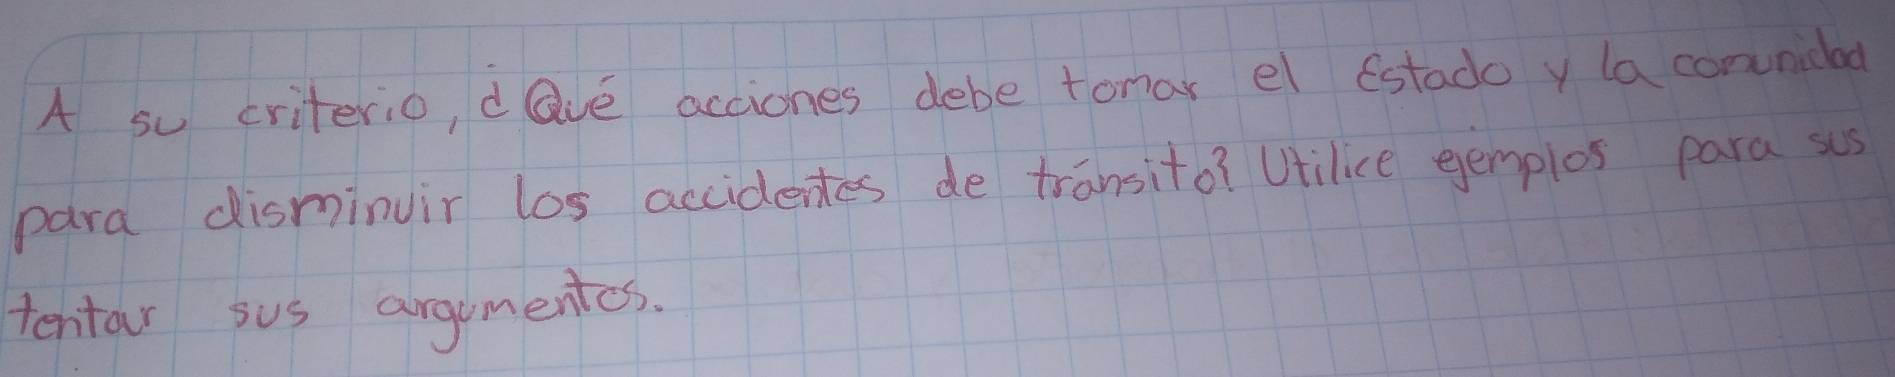 A su criterio, ¿Qué acciones debe tomar el Estado y la comunidad
para disminuir los accidentes de tránsito? Utilice ejemplos para sus
tentar sus argumentos.